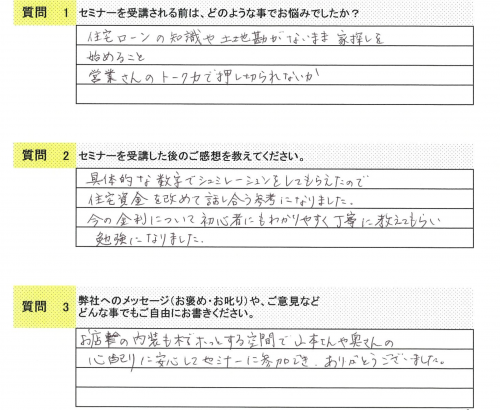 質問 1 セミナーを受講される前は、どのような事でお悩みでしたか？
住宅ローンの知識や土地勘がないまま家探しを
始めること
営業さんのトーク力で押し切られないか
質問 2 セミナーを受講した後のご感想を教えてください。
具体的な数字でシュミレーションをしてもらえたので
住宅資金を改めて話し合う参考になりました。
今の金利について初心者にもわかりやすく丁寧に教えてもらい
勉強になりました。
質問 3 弊社へのメッセージ（お褒め・お叱り）や、ご意見など
どんな事でもご自由にお書きください。
お店の内装も木でホッとする空間で山本さんや奥さんの
心配りに安心してセミナーに参加でき、ありがとうございました。